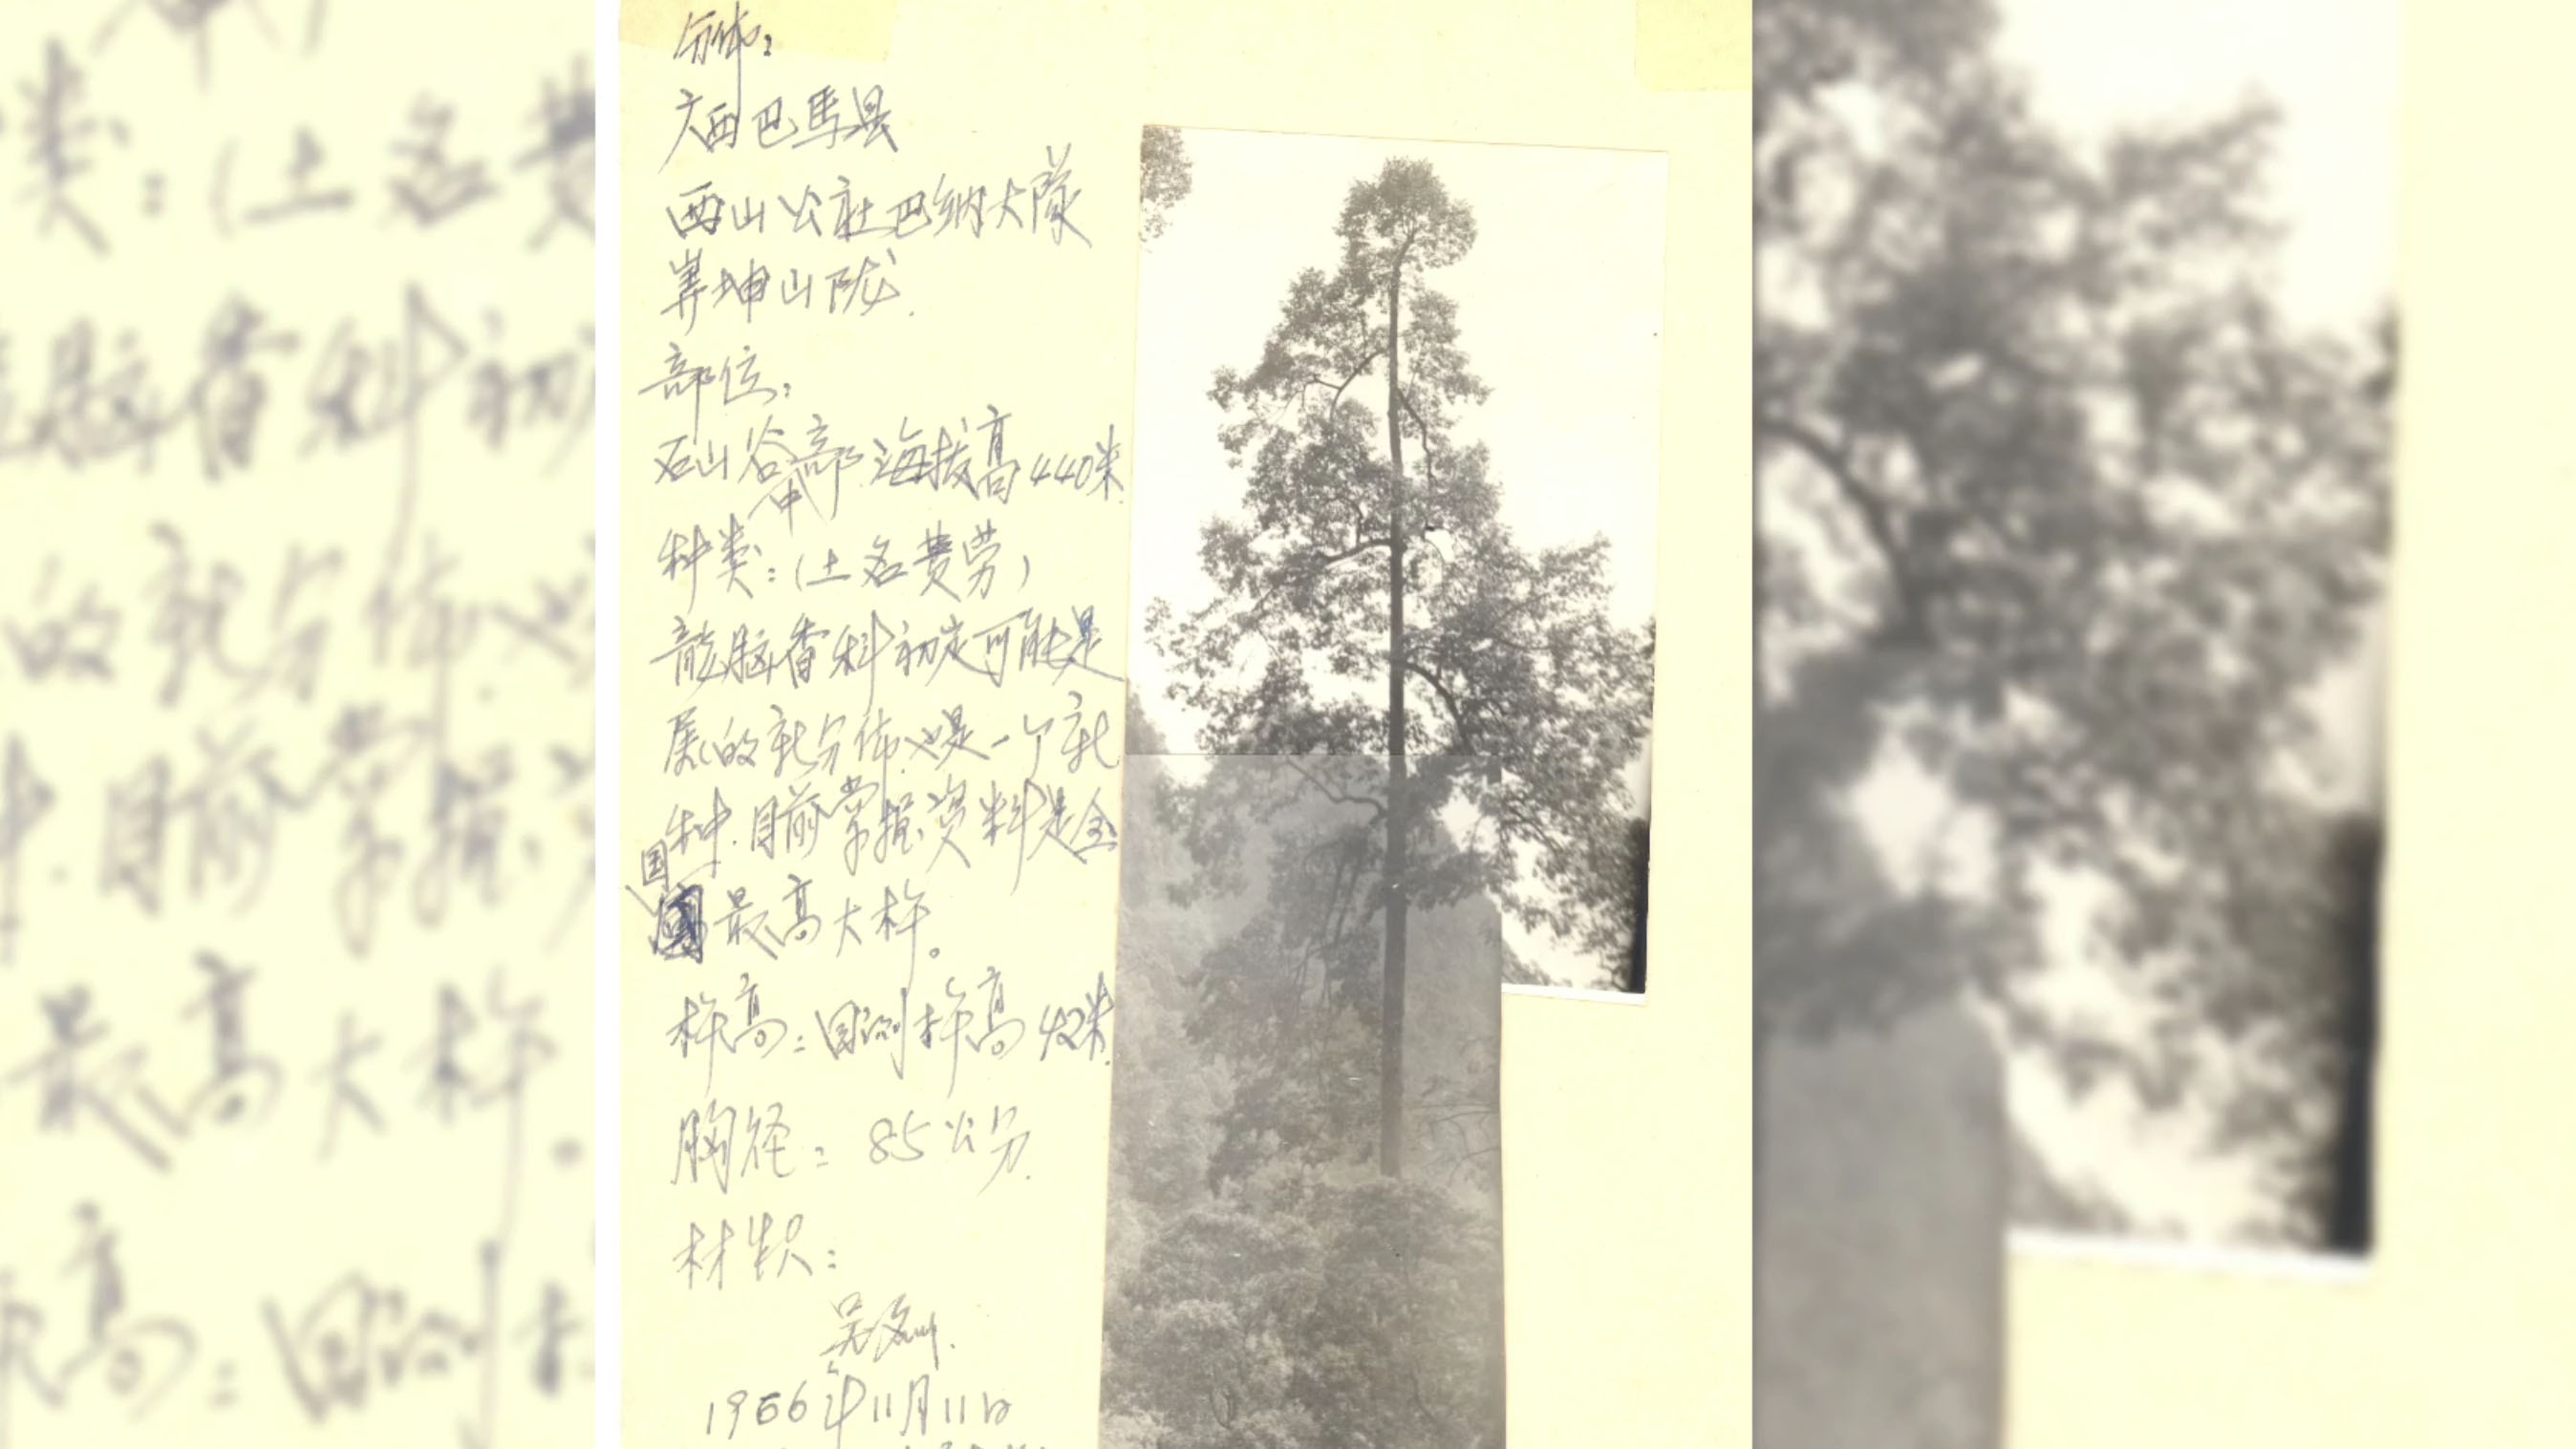 分佈：
广西巴馬县
西山公社巴纳大隊
弄坤山陇.
部位：
石山谷中部.海拔高440米.
种类：（土名费劳）
龍脑香科初定可能是
属的新分佈.也是一个新
种.目前掌握资料是全
国最高大树。
树高：目测树高42米.
胸径：85公分.
材积：
1966年11月11日